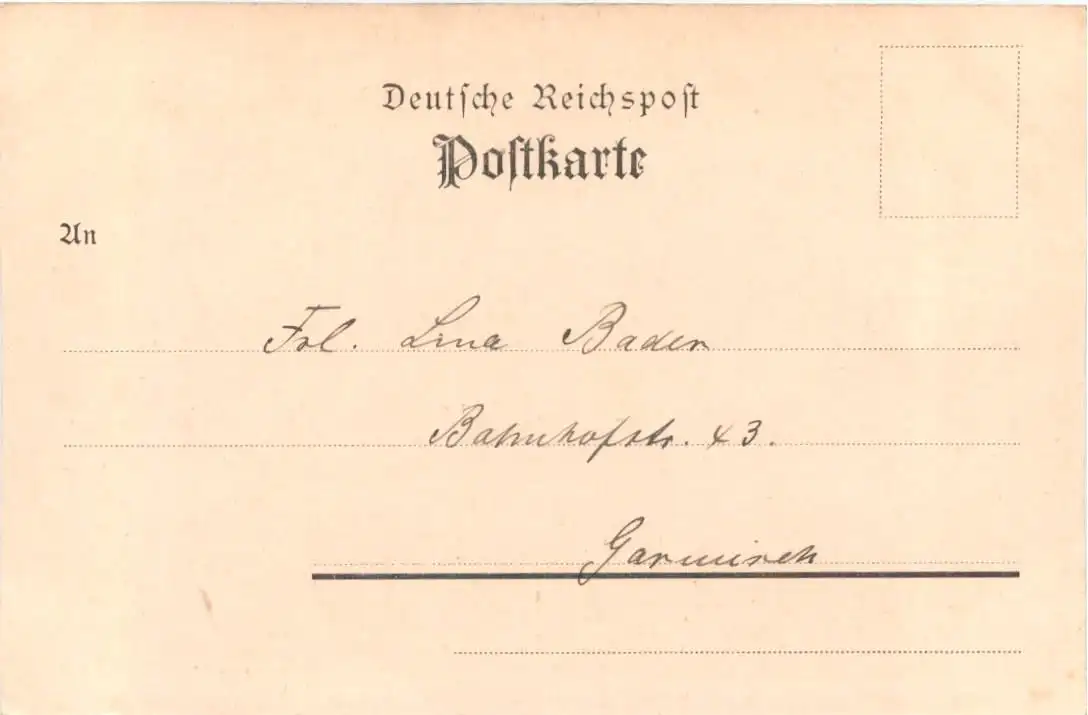 Deutſche Reichspoſt
Poſtkarte
An
Frl. Lina Bader
Bahnhofstr. 43.
Garmisch